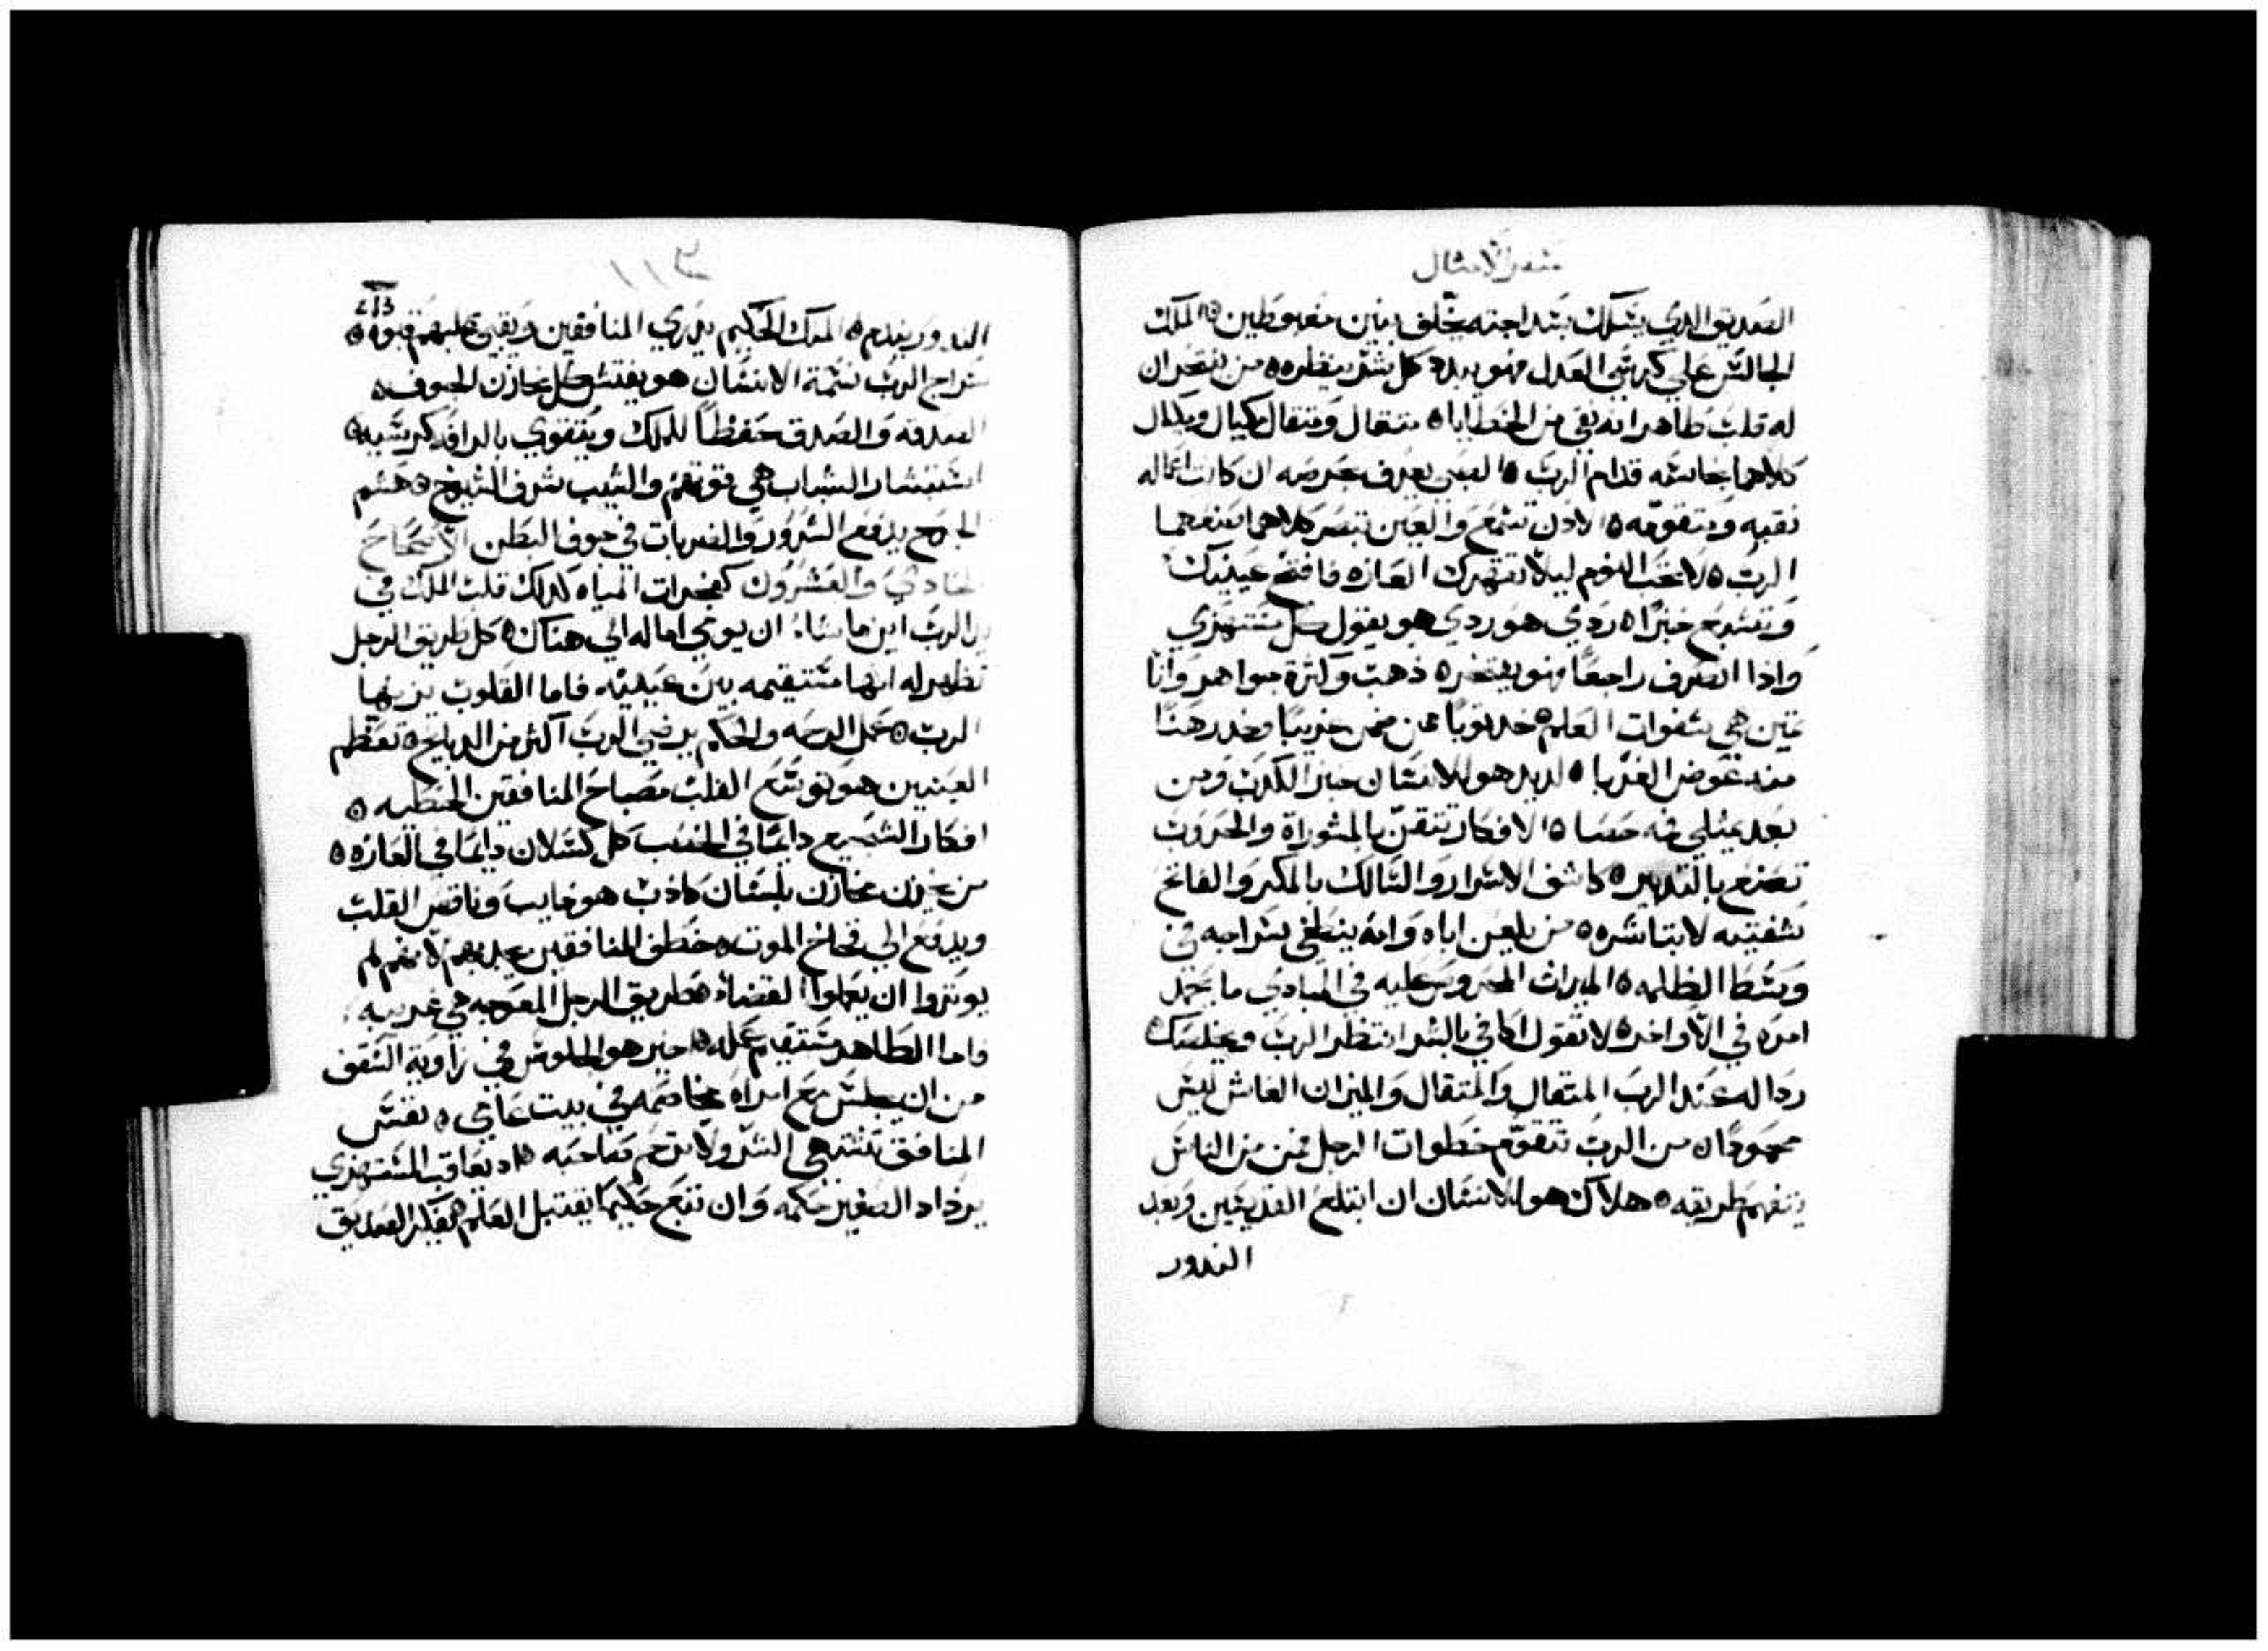 سفر الامثال
الصديق الدي يسلك بسداجته يخلف بنين مغبوطين ه الملك
الجالس علي كرسي العدل فهو يبدد كل شر بنظره ه من يفتخر ان
له قلب طاهر انه نقي من الخطايا ه متقال ومتقال مكيال ومكيال
كلاهما نجاسه قدام الرب ه الصبي يعرف بحرصه ان كانت اعماله
نقيه ومتقومه ه الادن تسمع والعين تبصر كلاهما صنعهما
الرب ه لا تحب النوم ليلا تقهرك الفاقه فافتح عينيك
وتشبع خبزا ه ردي هو ردي هو يقول كل مشتري
وادا انصرف راجعا فهو يفتخر ه ذهب وكترة جواهر وانا
تمين هي شفوات العلم ه خد توبا عمن ضمن غريبا وخد رهنا
منه عوض الغربا ه لديد هو للانسان خبز الكدب ومن
بعد يمتلي فمه حصا ه الافكار تتقن بالمشوراة والحروب
تصنع بالتدبير ه كاشف الاسرار والسالك بالمكر والفاتح
شفتيه لا تباشره ه من يلعن اباه وامه ينطفي سراجه في
وسط الظلمه ه الميراث المحروص عليه في المبادي ما يحمد
امره في الاواخر ه لا تقول اكافي بالشر انتظر الرب ويخلصك ه
ردالة عند الرب المتقال والمتقال والميزان الغاش ليس
محمودا ه من الرب تتقوم خطوات الرجل فمن من الناس
يتفهم طريقه ه هلاك هو للانسان ان ابتلع القديسين وبعد
الندور
113
213
الندور يندم ه الملك الحكيم يدري المنافقين ويقبي عليهم قبوه ه
سراج الرب نسمة الانسان هو يفتش كل مخازن الجوف ه
الصدقه والصدق حفظا للملك ويتقوي بالرافه كرسيه ه
استبشار الشباب هي قوتهم والشيب شرف الشيوخ ه هشم
الجرح يدفع الشرور والضربات في جوف البطن الاصحاح
الحادي والعشرون كفجرات المياه كدلك قلب الملك في
يد الرب اين ما شاء ان يوي اماله الي هناك ه كل طريق الرجل
تظهر له انها مستقيمه بين عينيه فاما القلوب يزنها
الرب ه عمل الرحمه والحكم يرضي الرب اكثر من الدبايح ه تعظم
العينين هو توسع القلب مصباح المنافقين الخطيه ه
افكار الشجيع دايما في الخصب كل كسلان دايما في الفاقه ه
من يخزن مخازن بلسان كادب هو خايب وناقص القلب
ويدفع الي فخاخ الموت ه خطف المنافقين يجدبهم لانهم لم
يوثروا ان يعملوا القضاء ه طريق الرجل المعوجه هي غريبه
فاما الطاهر مستقيم عمله ه خير هو الجلوس في زاوية السقف
من ان يجلس مع امراه مخاصمه في بيت عامي ه نفس
المنافق تشتهي الشر ولا ترحم صاحبه ه اد يعاقب المستهزي
يزداد الصغير حكمه وان تتبع حكيما يقتبل العلم ه يفكر الصديق